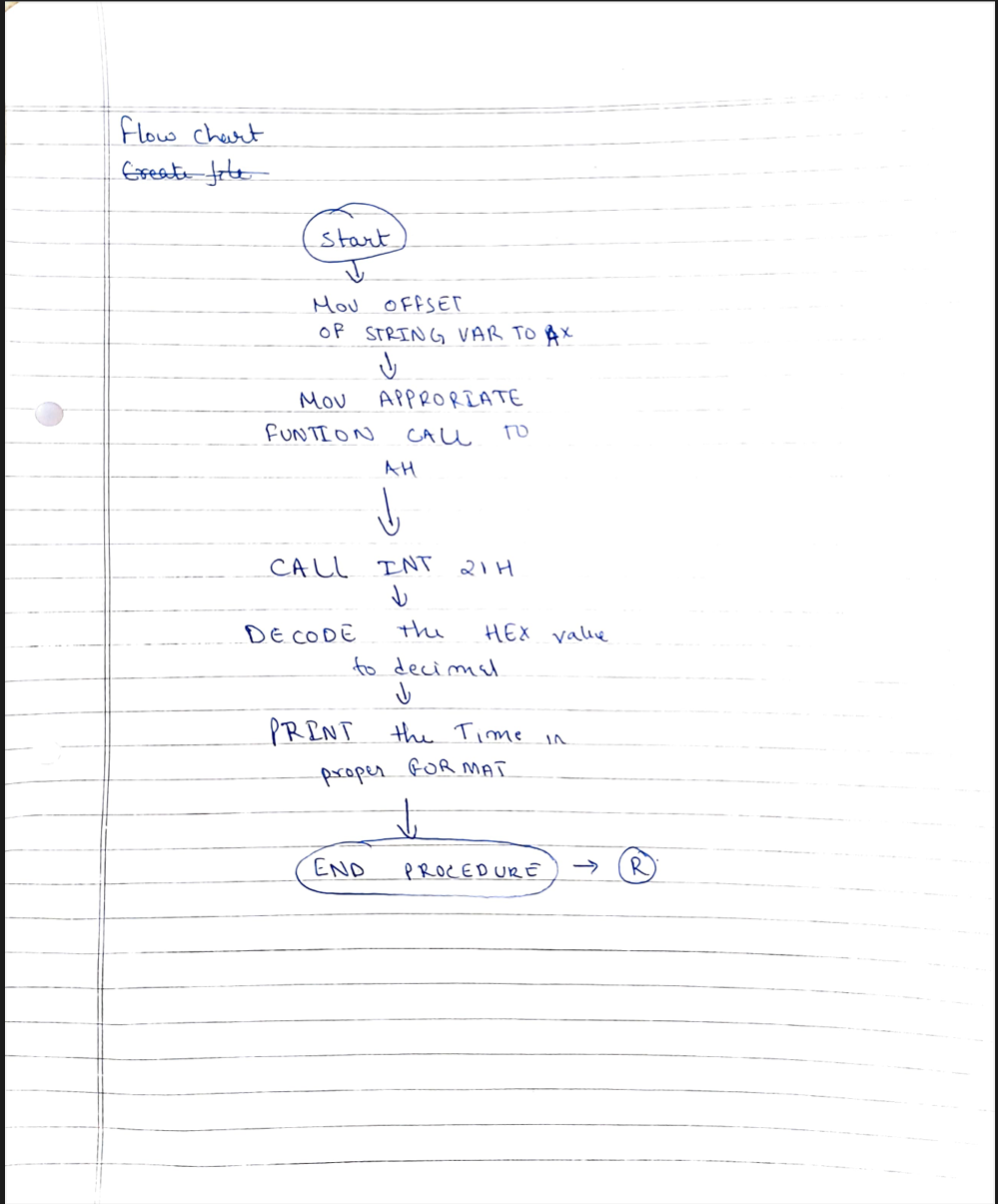 Flow chart
Create file
Start
MOV OFFSET
OF STRING VAR TO AX
MOV APPRORIATE
FUNTION CALL TO
AH
CALL INT 21H
DECODE the HEX value
to decimal
PRINT the Time in
proper FORMAT
END PROCEDURE → R